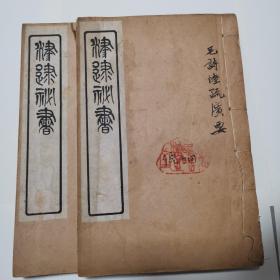 津逮秘書
津逮秘書
毛詩陸疏廣要